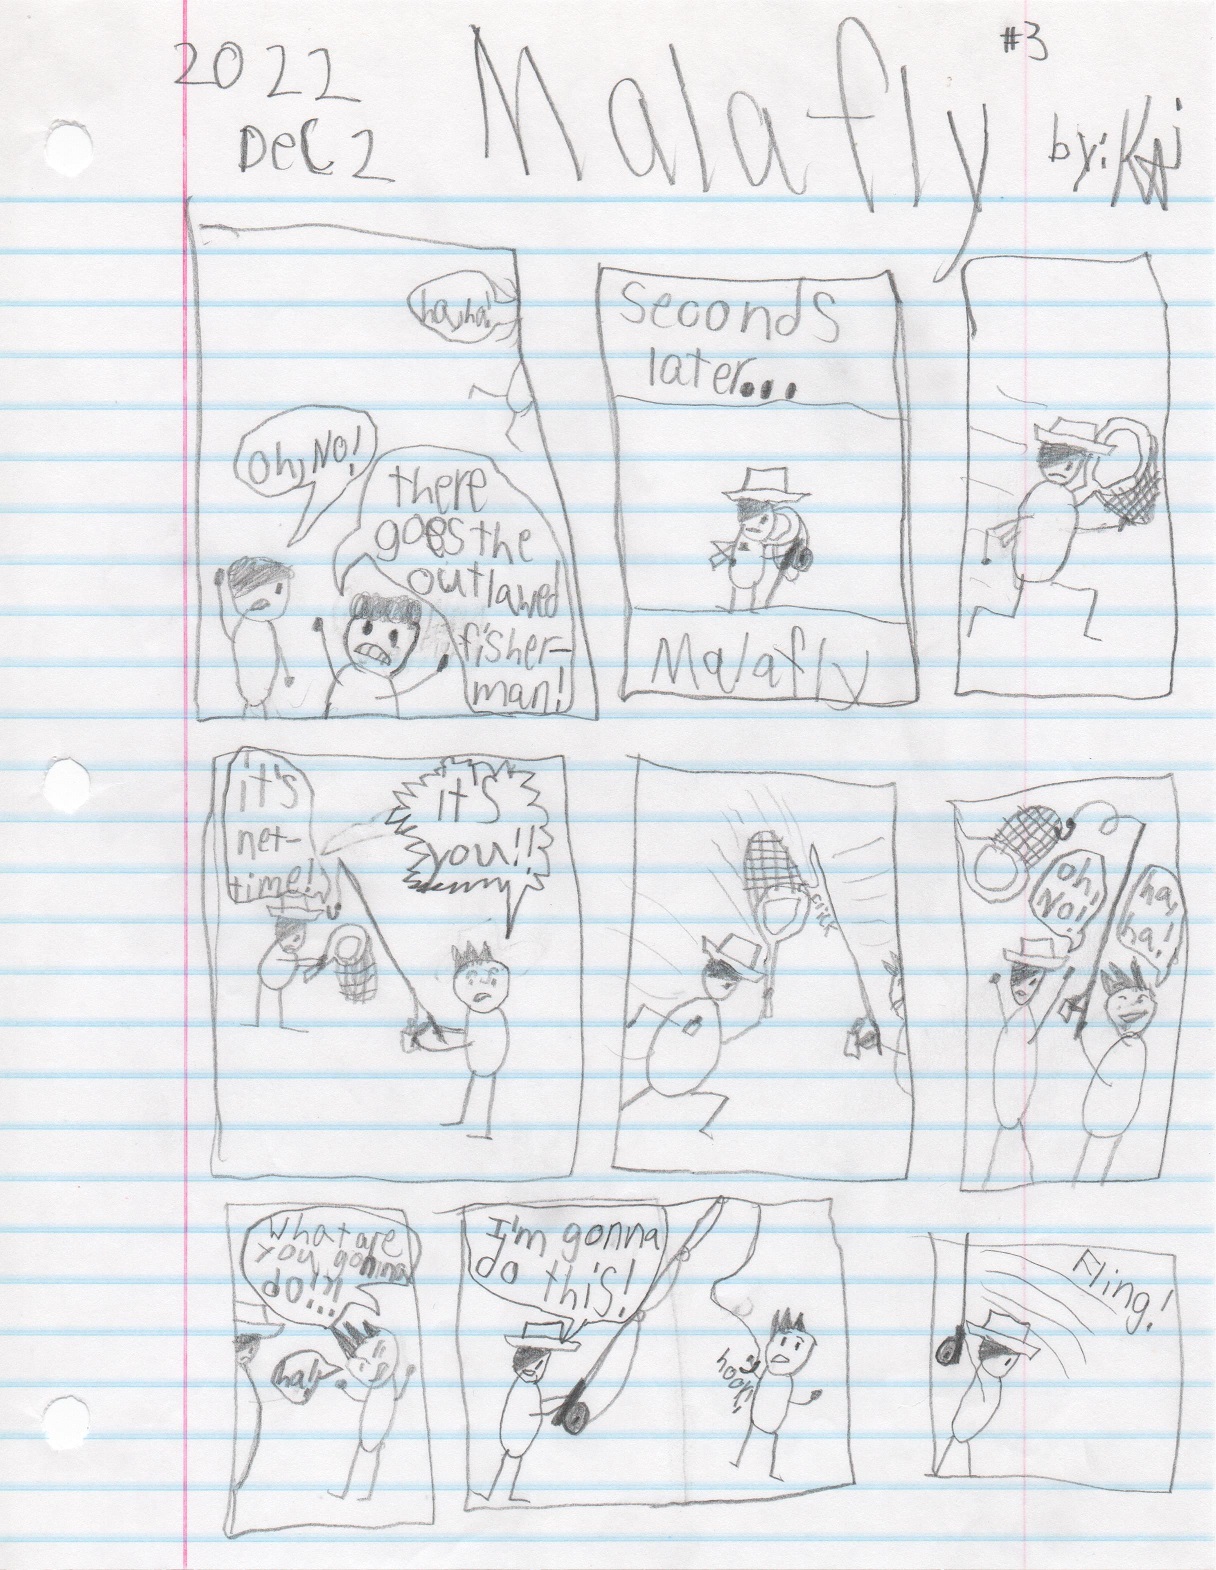 2022
Dec 2
Malafly
#3
by: Kai
ha, ha!
Oh, No!
there
goes the
outlawed
fisher-
man!
Seconds
later...
Malafly
it's
net-
time!
it's
you!!
click
oh,
No!
ha,
ha!
What are
you gonna
do?!
ha!
I'm gonna
do this!
hook!
Fling!